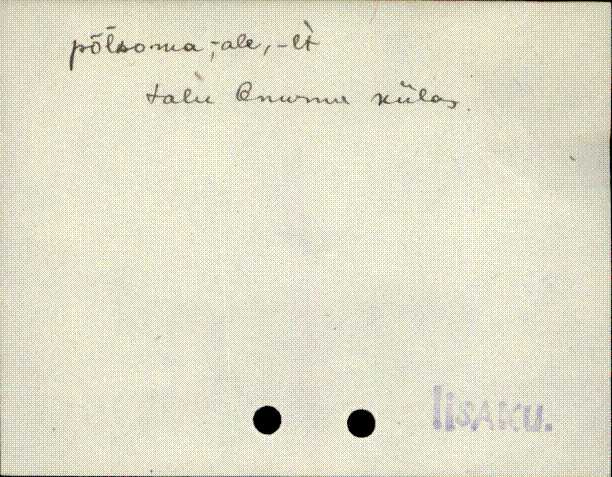 põlsoma, -ale, -lt
talu Onurme külas.
Iisaku.